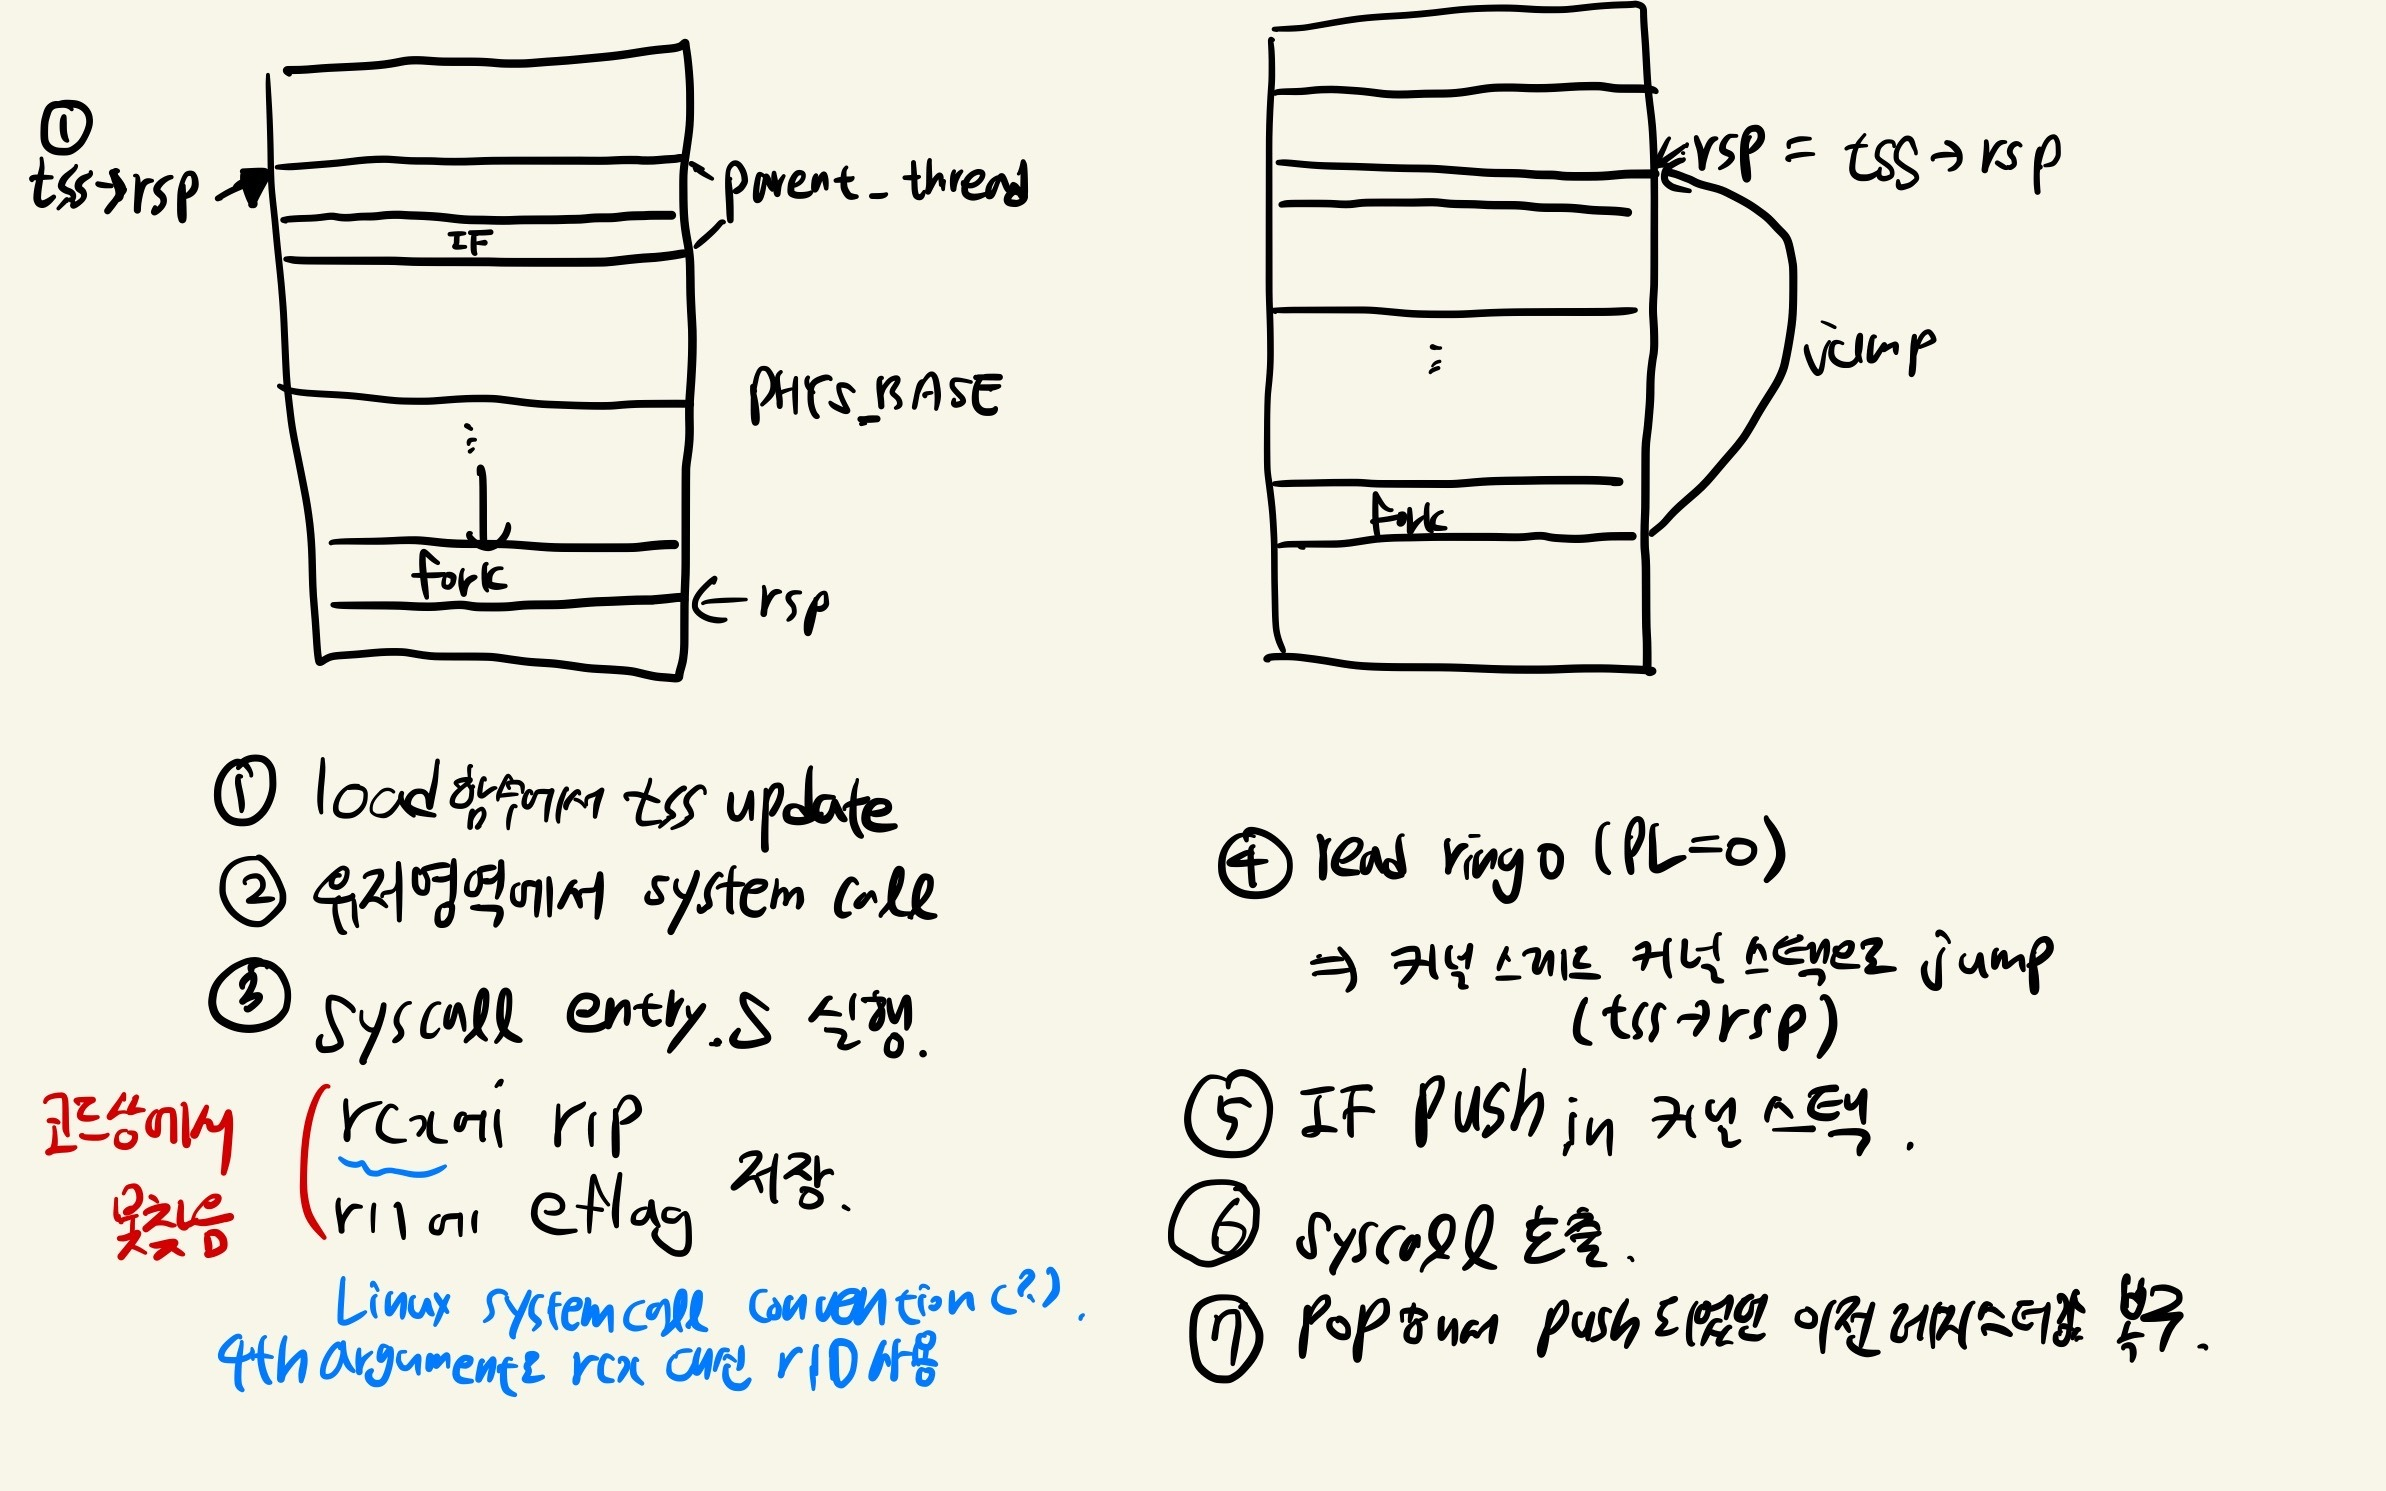 ①
tss→rsp
parent_thread
IF
PHYS_BASE
⋮
fork
rsp
rsp = tss→rsp
jump
⋮
fork
① load함수에서 tss update
② 유저영역에서 system call
③ syscall entry.S 실행.
코드상에서
못찾음
rcx에 rip
저장.
r11에 eflag
Linux system call convention(?).
4th argument로 rcx 대신 r10사용
④ read ring 0 (PL=0)
⇒ 커널 스레드 커널 스택으로 jump
(tss→rsp)
⑤ IF push in 커널 스택.
⑥ syscall 호출.
⑦ pop하면서 push 되었던 이전 레지스터값 복구.